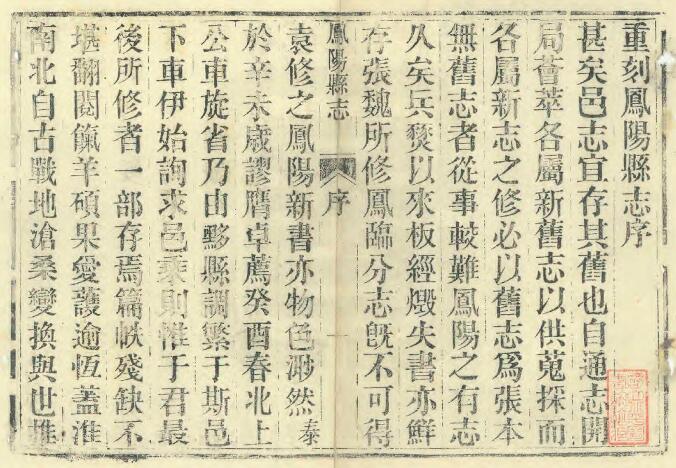 重刻鳳陽縣志序
甚矣邑志宜存其舊也自通志開
局薈萃各屬新舊志以供蒐採而
各屬新志之修必以舊志爲張本
無舊志者從事較難鳳陽之有志
久矣兵燹以來板經燬失書亦鮮
存張魏所修鳳臨分志旣不可得
鳳陽縣志
序
袁修之鳳陽新書亦物色渺然泰
於辛未歲謬膺卓薦癸酉春北上
公車旋省乃由黟縣調繁于斯邑
下車伊始詢求邑乘則惟于君最
後所修者一部存焉篇帙殘缺不
堪翻閱餼羊碩果愛護逾恆蓋淮
南北自古戰地滄桑變換與世推